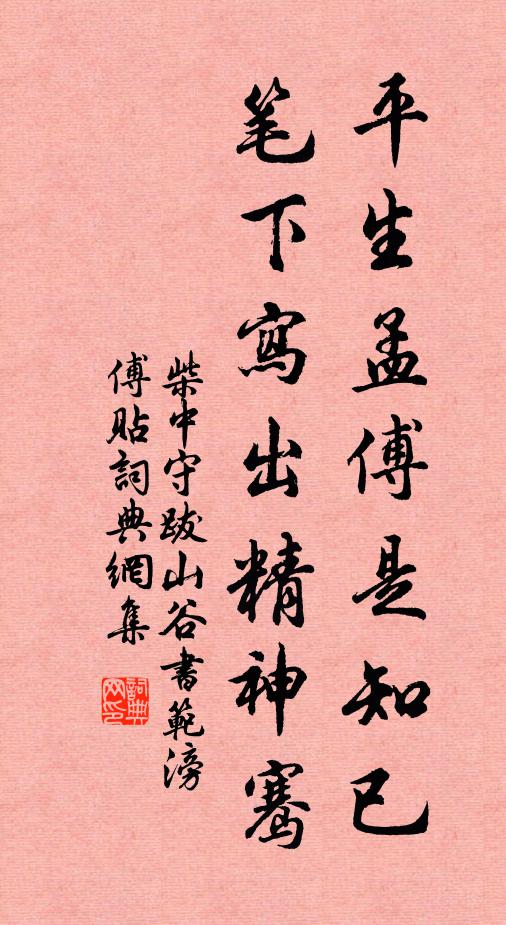 平生孟傅是知已
笔下寫出精神騫
柴中守跋山谷書範滂
傅貼詞典網集
詞典网印